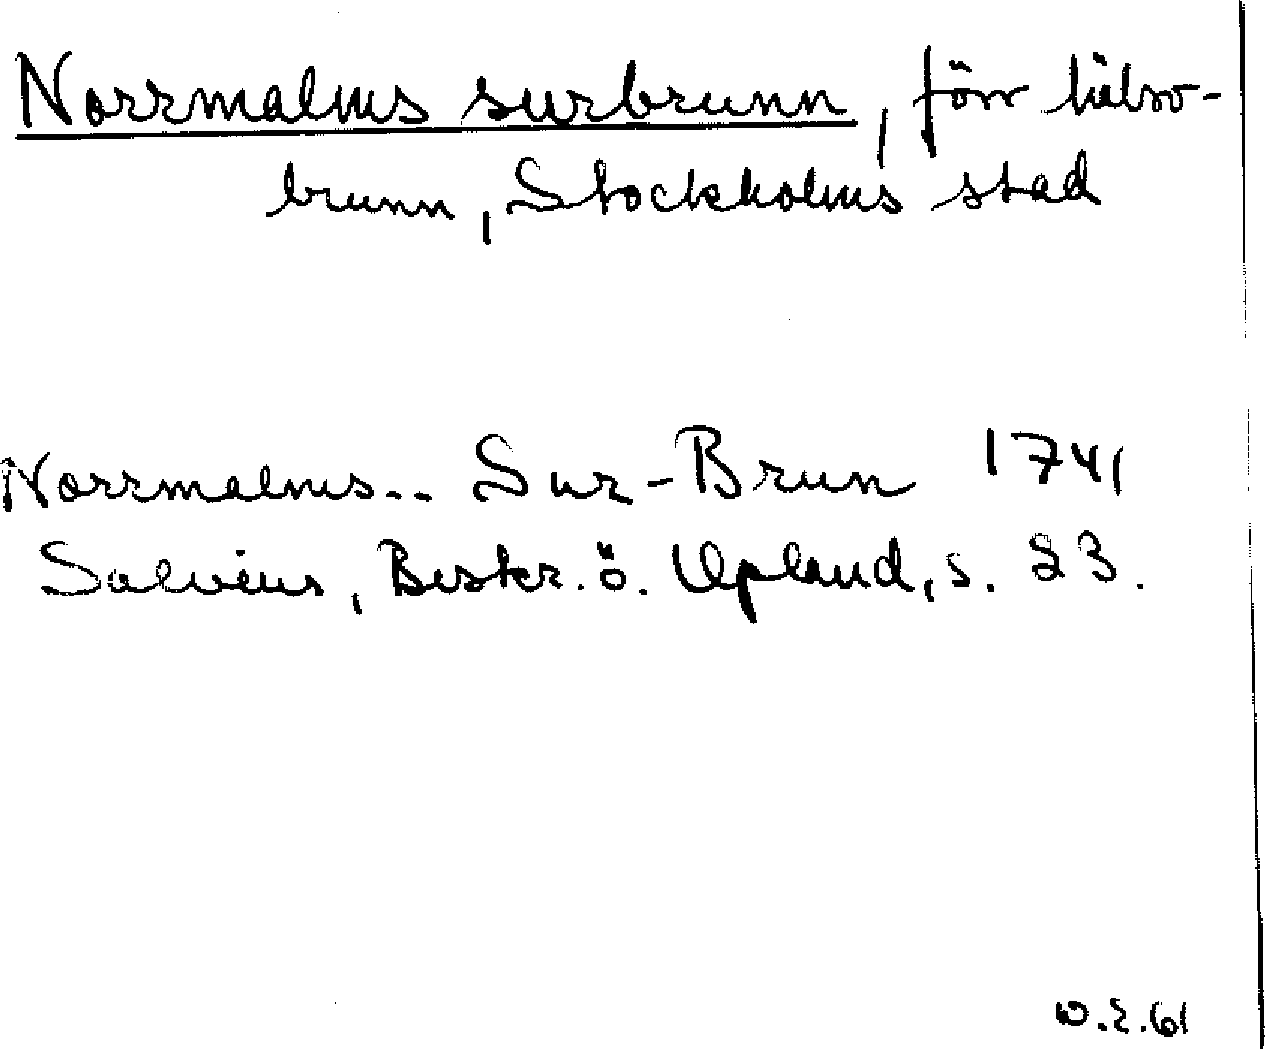 Norrmalms surbrunn, förr hälso-
brunn, Stockholms stad
Norrmalms.. Sur-Brun 1741
Salvius, Beskr. ö. Upland, s. 23.
10.2.61